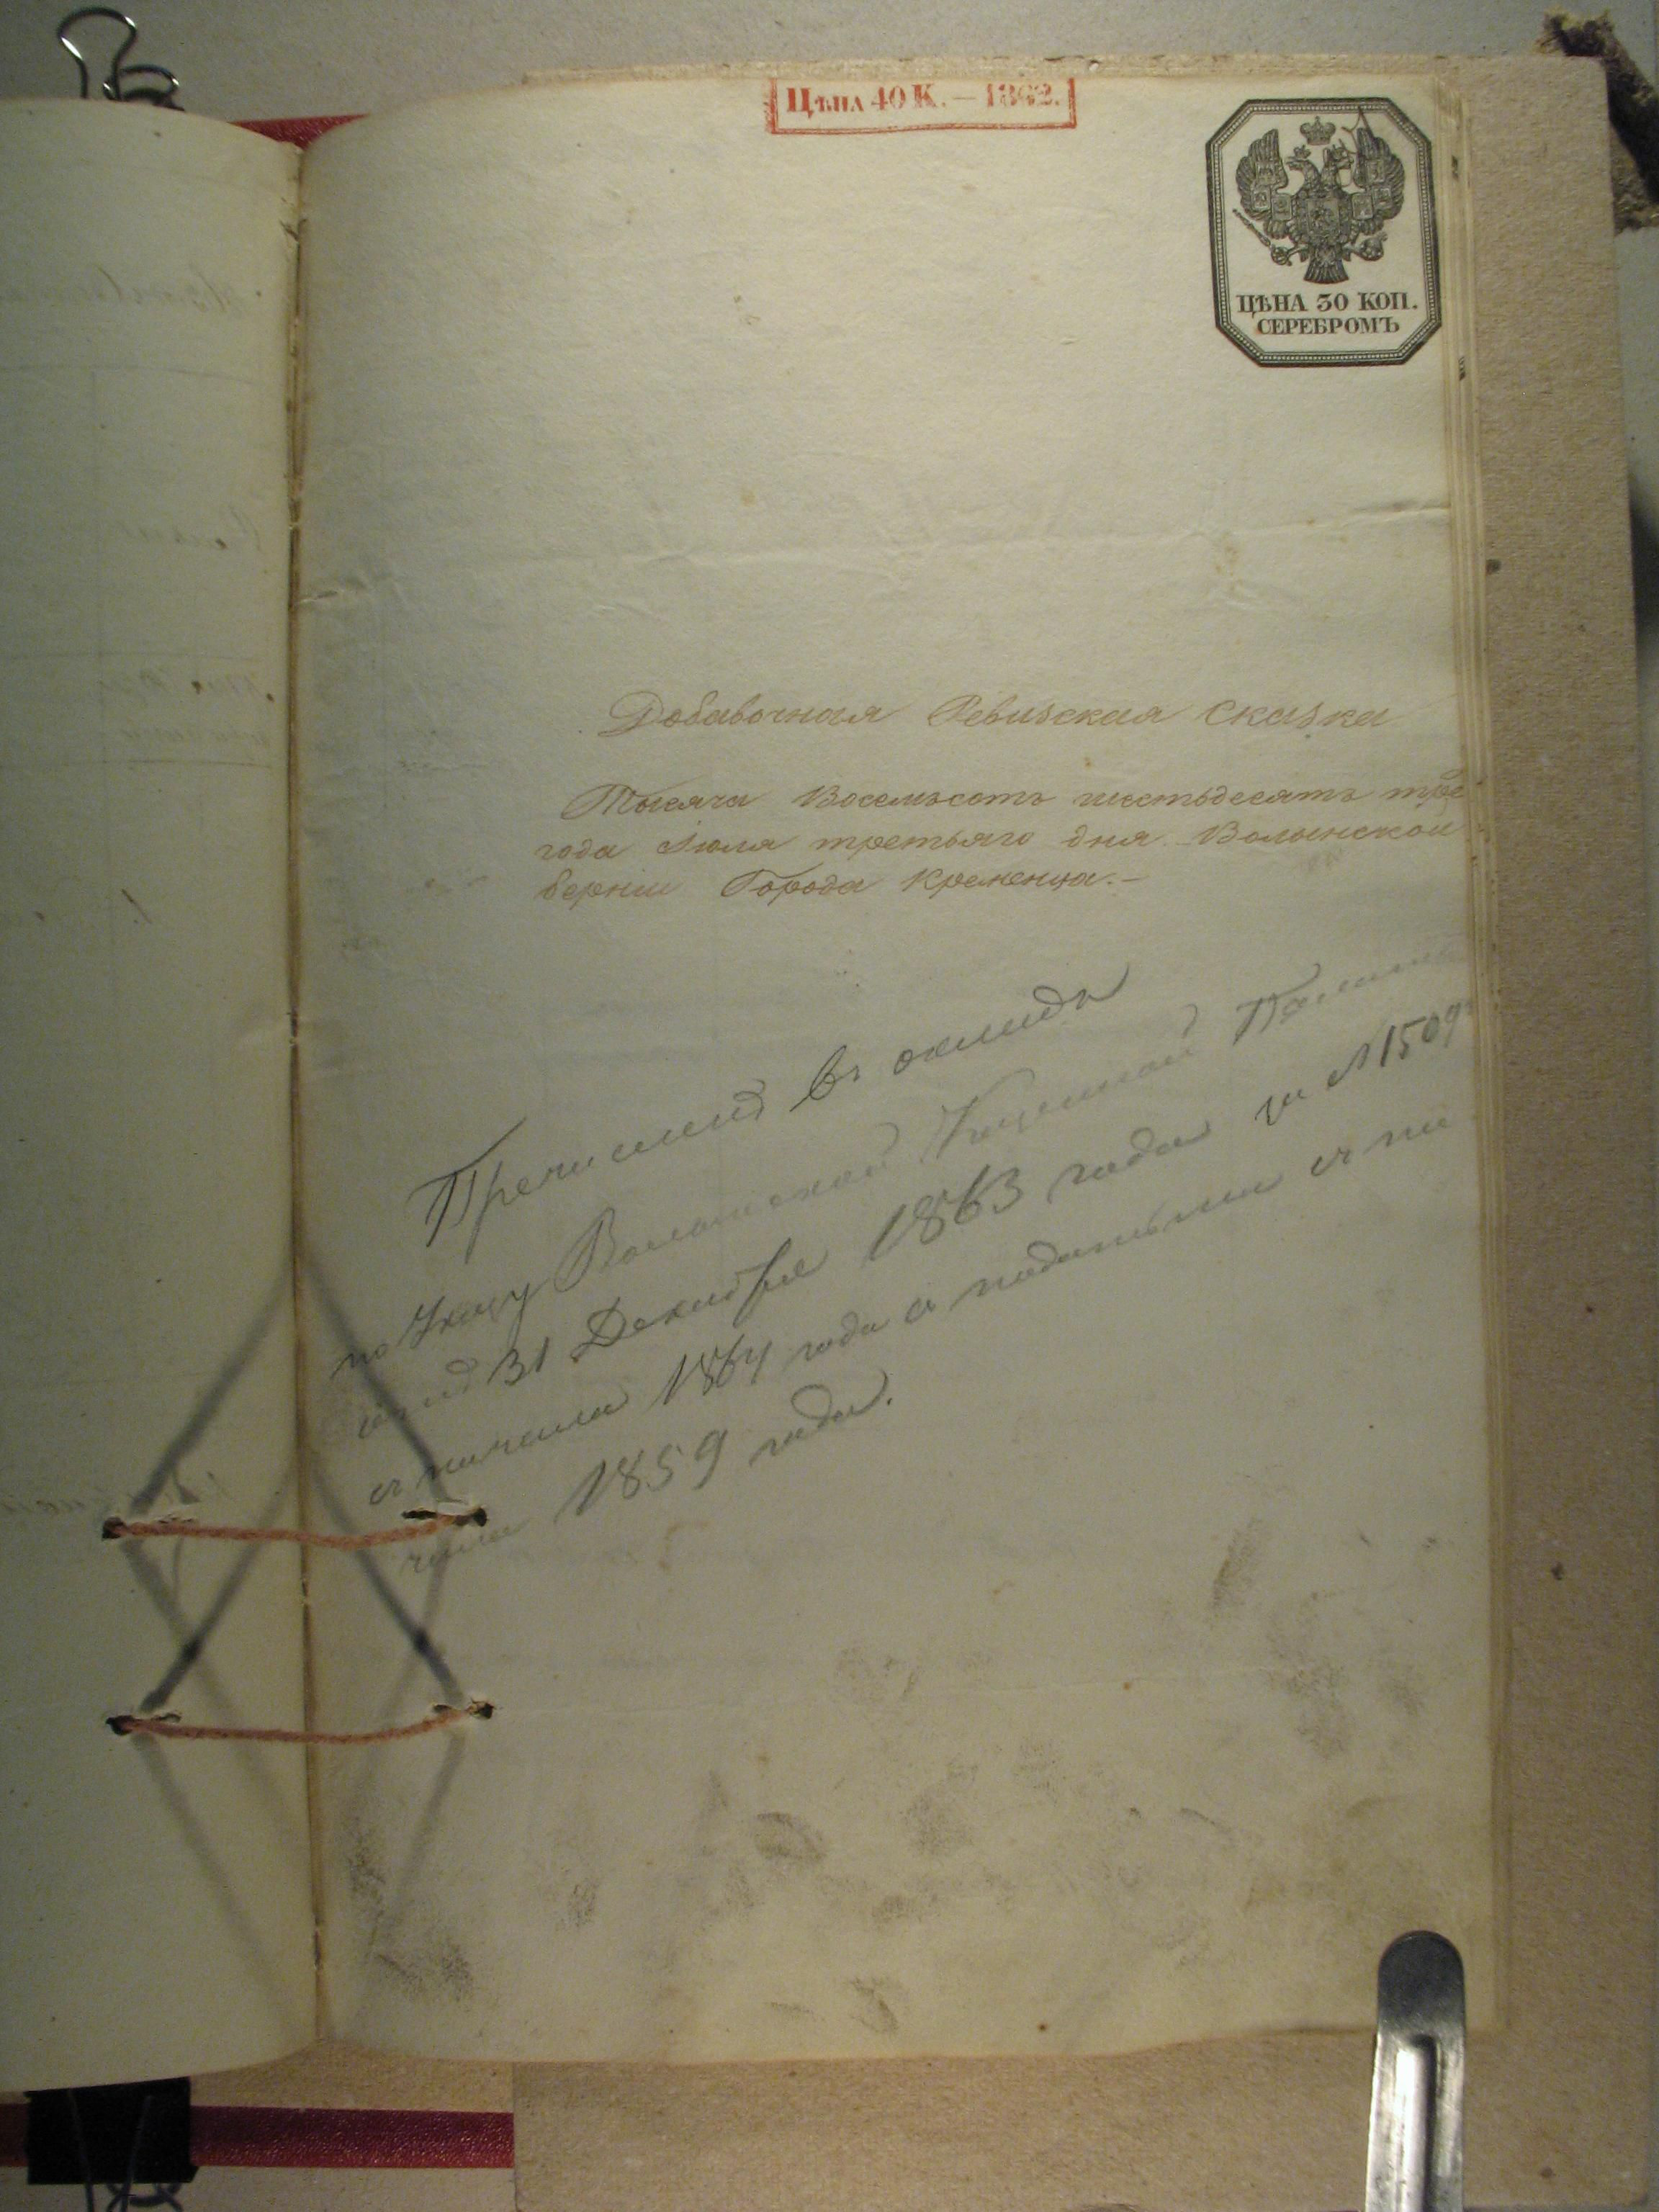 Цѣна 40 К. — 1862.
ЦѢНА 30 КОП.
СЕРЕБРОМЪ
Добавочная Ревизская сказка
Тысяча Восемьсотъ шестьдесятъ тре
года Іюля третьяго дня Волынской
берніи Города Кременца.—
въ окладъ
по Указу Волынской Казенной Палаты
31 Декабря 1863 года за №1509
съ начала 1864 года а податьми съ на
чала 1859 года.